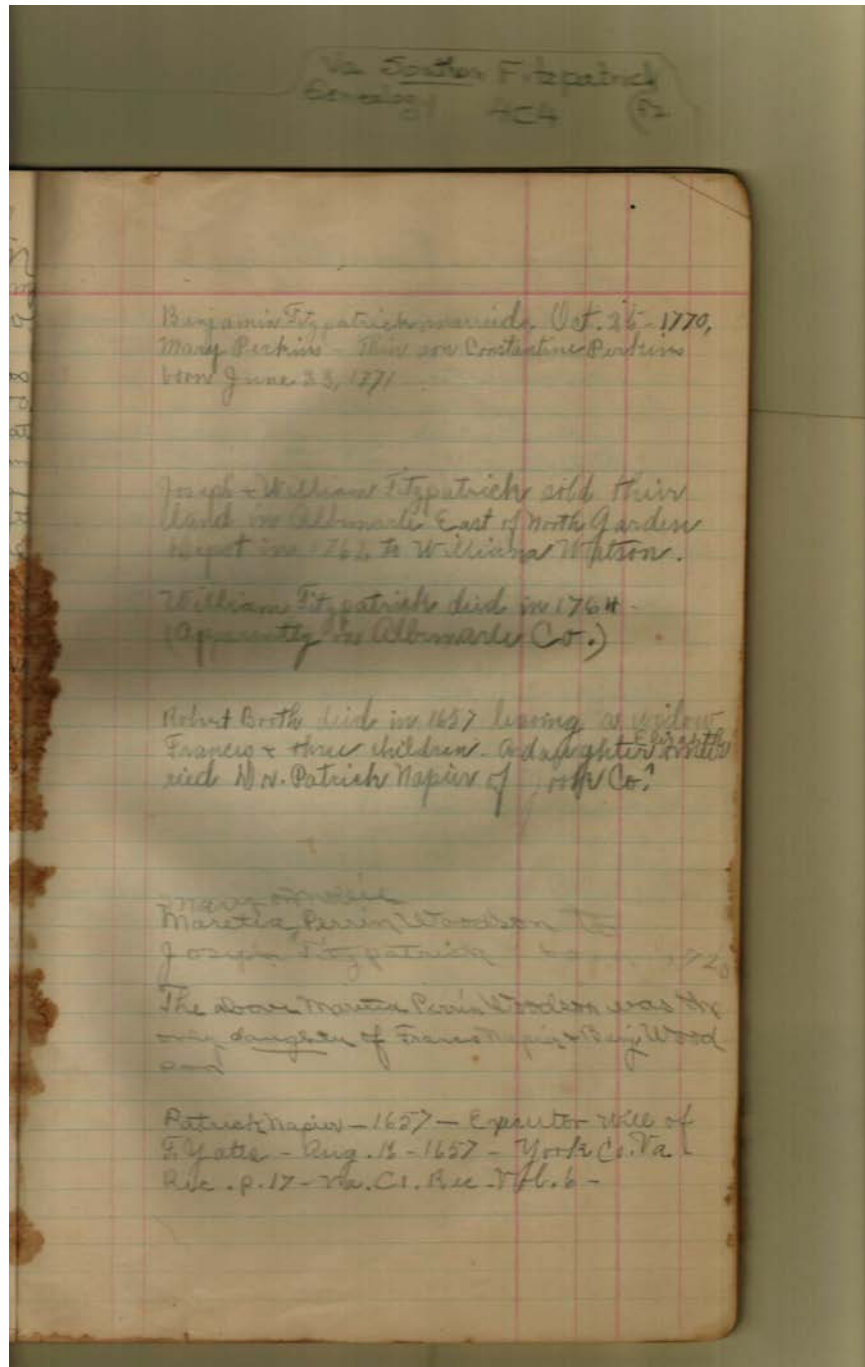 Va Southern Fitzpatrick
Genealogy 4C4
Benjamin Fitzpatrick married Oct. 25 - 1770,
Mary Perkins - Their son Constantine Perkins
born June 23, 1771
Joseph + William Fitzpatrick sold their
land in Albemarle East of North Garden
Depot in to William Watson.
William Fitzpatrick died in 1764 -
(Apparently in Albemarle Co.)
Robert Booth died in 1657 leaving a widow
Frances + three children. A daughter Elizabeth
ried Dr. Patrick Napier of York Co.
Mary or
Maretia Perrin Woodson to
Joseph Fitzpatrick
The above Maretia Perrin Woodson was the
only daughter of Frances Napier + Benj. Wood
son
Patrick Napier - 1657 - Executor will of
F. Yates - Aug. - 1657 - York Co. Va.
Rec. p. 17 - Va. Rec. Vol. 6 -